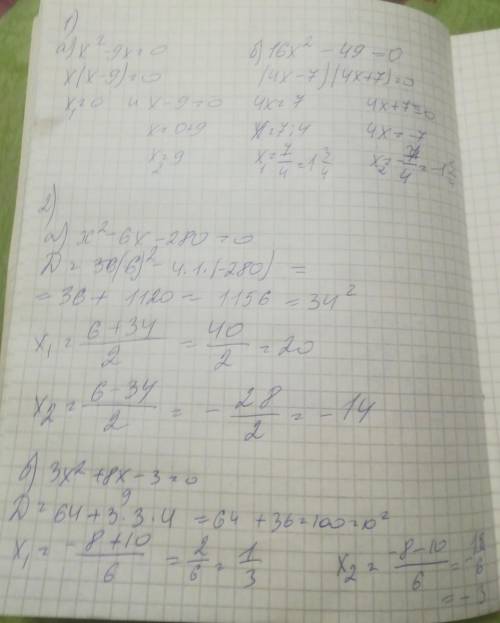 1)
а) x² - 9x = 0
x(x-9) = 0
x₁ = 0 и x - 9 = 0
x = 0+9
x₂ = 9
б) 16x² - 49 = 0
(4x-7)(4x+7) = 0
4x = 7 4x+7 = 0
x = 7:4 4x = -7
x₁ = 7/4 = 1 3/4 x₂ = -7/4 = -1
2)
а) x² - 6x - 280 = 0
D = (6)² - 4·1·(-280) =
= 36 + 1120 = 1156 = 34²
x₁ = (6+34)/2 = 40/2 = 20
x₂ = (6-34)/2 = -28/2 = -14
б) 3x² + 8x - 3 = 0
9
D = 64 + 3·3·4 = 64 + 36 = 100 = 10²
x₁ = (-8+10)/6 = 2/6 = 1/3
x₂ = (-8-10)/6 = -18/6
= -3